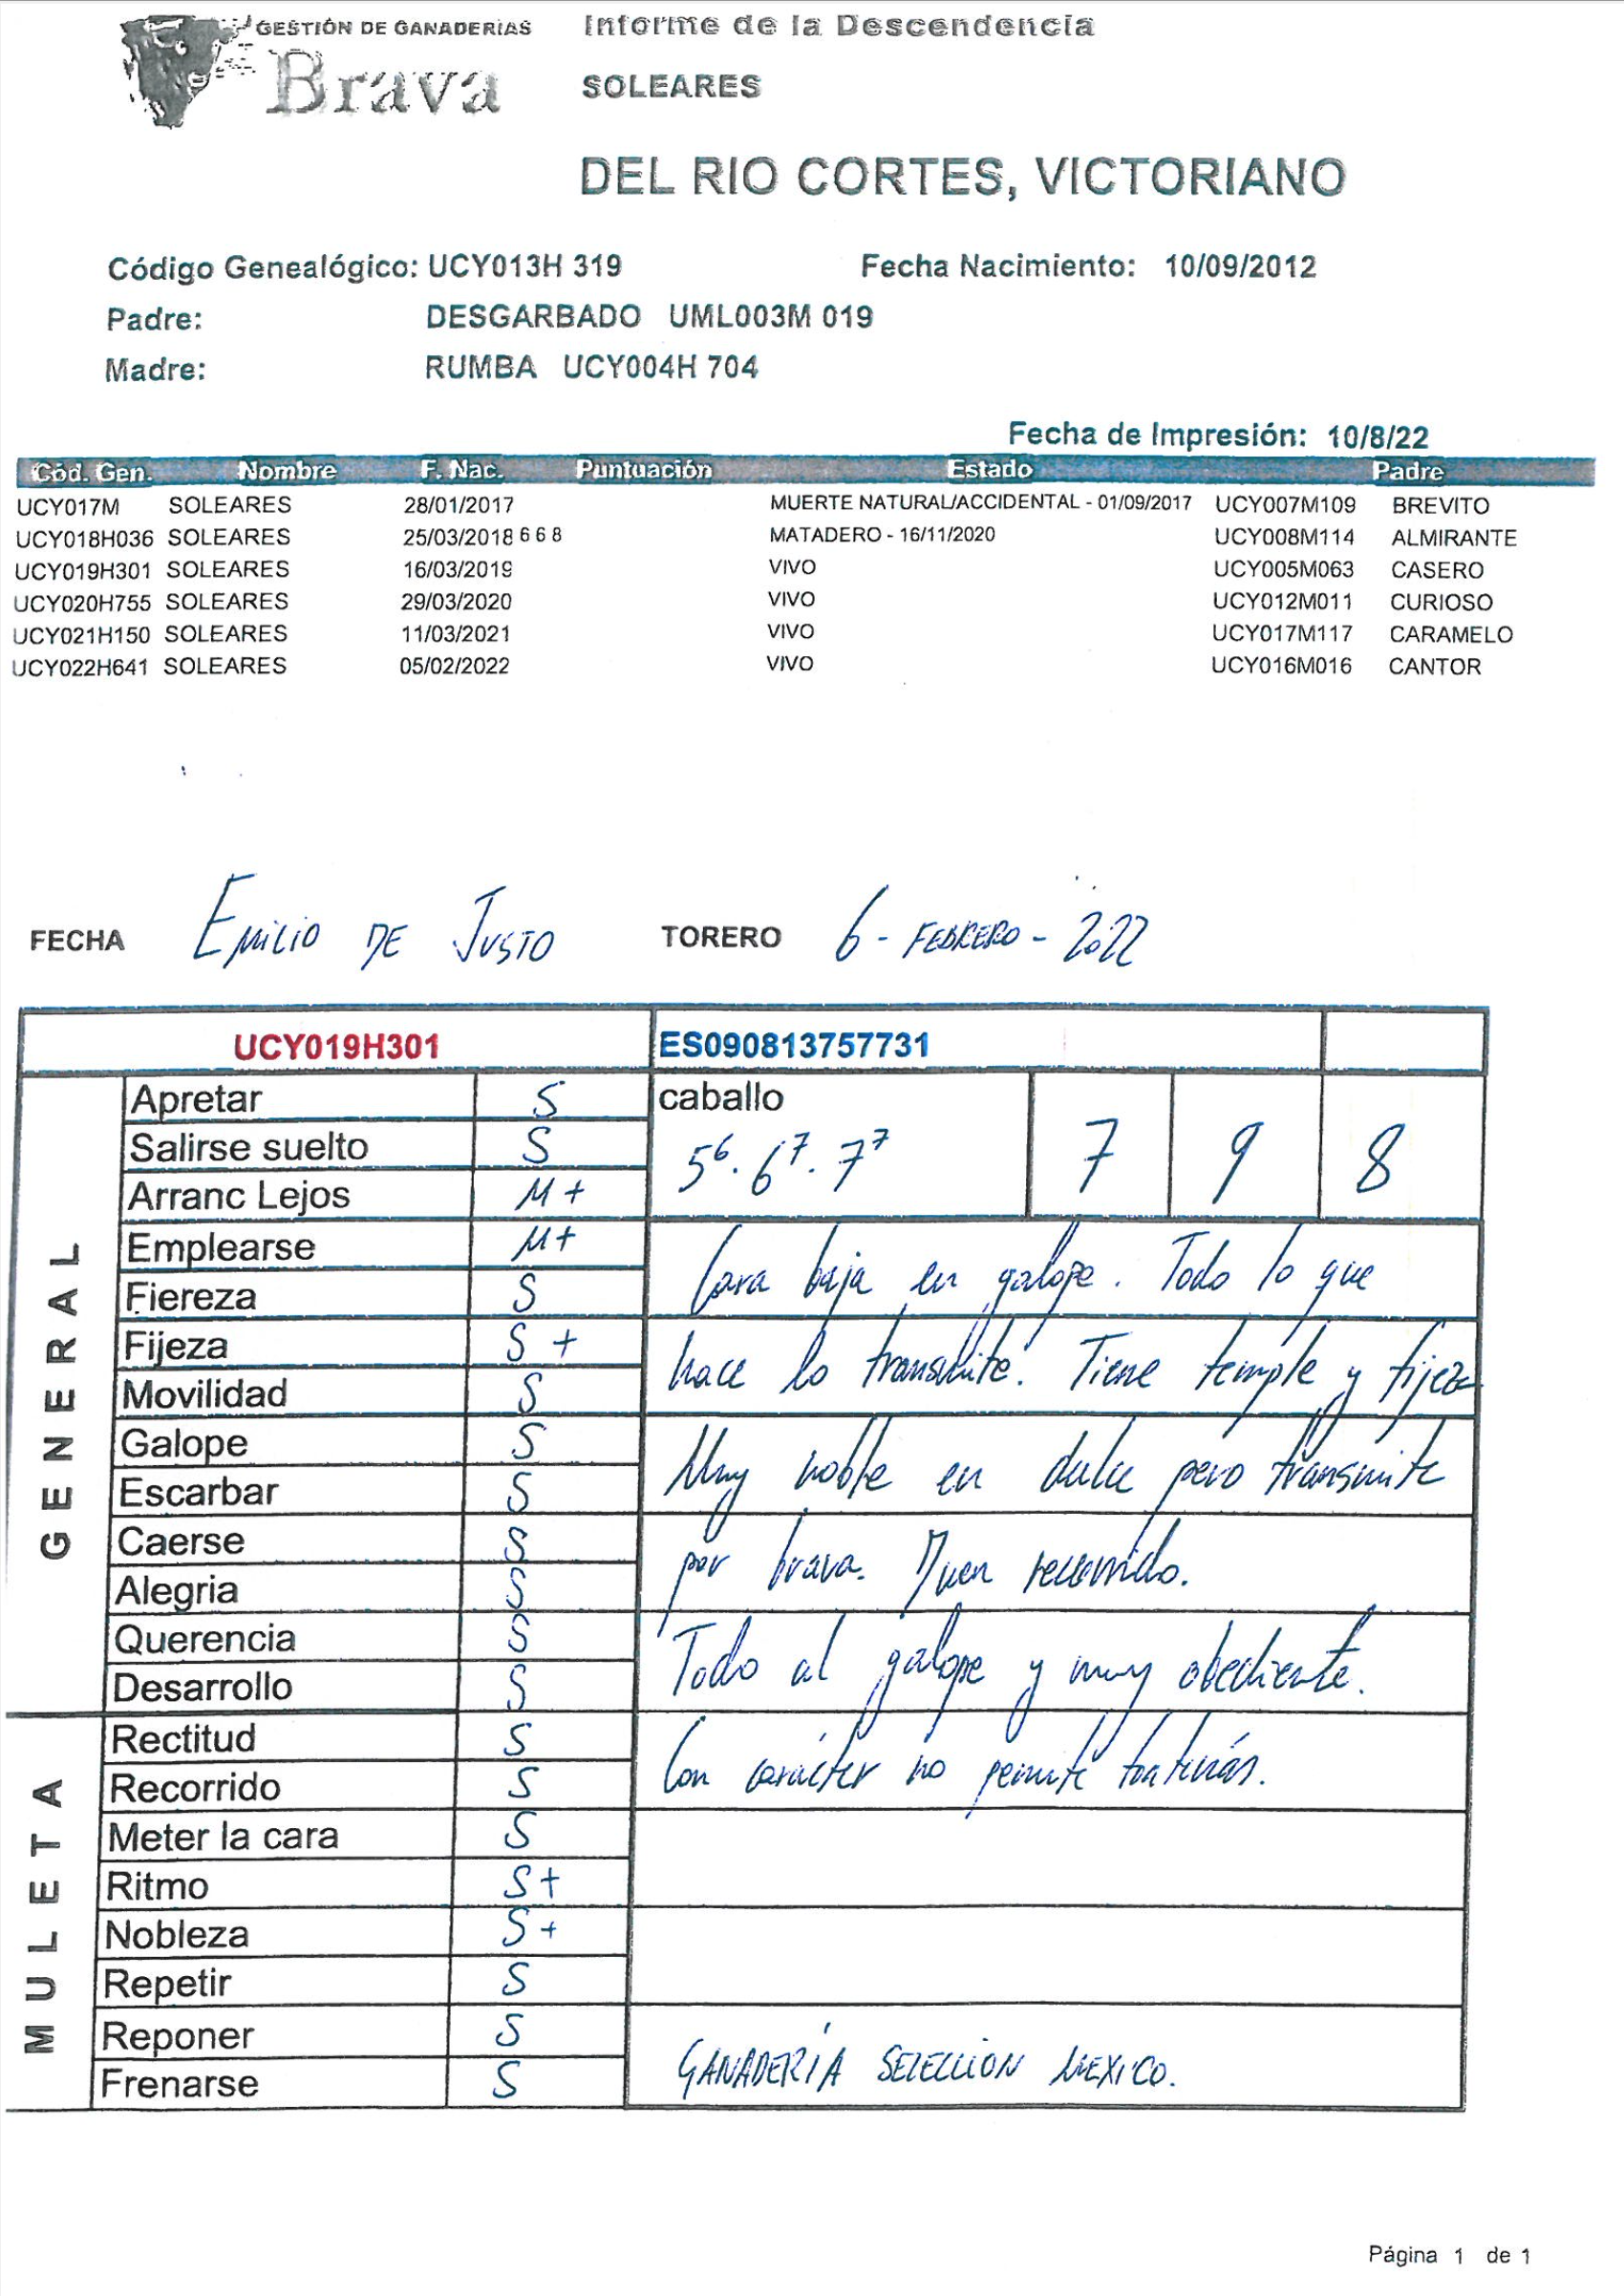 GESTIÓN DE GANADERÍAS
Brava
Informe de la Descendencia
SOLEARES
DEL RIO CORTES, VICTORIANO
Código Genealógico: UCY013H 319 Fecha Nacimiento: 10/09/2012
Padre: DESGARBADO UML003M 019
Madre: RUMBA UCY004H 704
Fecha de Impresión: 10/8/22
Cód. Gen. Nombre F. Nac. Puntuación Estado Padre
UCY017M SOLEARES 28/01/2017 MUERTE NATURAL/ACCIDENTAL - 01/09/2017 UCY007M109 BREVITO
UCY018H036 SOLEARES 25/03/2018 6 6 8 MATADERO - 16/11/2020 UCY008M114 ALMIRANTE
UCY019H301 SOLEARES 16/03/2019 VIVO UCY005M063 CASERO
UCY020H755 SOLEARES 29/03/2020 VIVO UCY012M011 CURIOSO
UCY021H150 SOLEARES 11/03/2021 VIVO UCY017M117 CARAMELO
UCY022H641 SOLEARES 05/02/2022 VIVO UCY016M016 CANTOR
FECHA EMILIO DE JUSTO TORERO 6 - FEBRERO - 2022
UCY019H301 ES090813757731
GENERAL
Apretar S
Salirse suelto S
Arranc Lejos M +
Emplearse M +
Fiereza S
Fijeza S +
Movilidad S
Galope S
Escarbar S
Caerse S
Alegria S
Querencia S
Desarrollo S
MULETA
Rectitud S
Recorrido S
Meter la cara S
Ritmo S +
Nobleza S +
Repetir S
Reponer S
Frenarse S
caballo
5⁶. 6⁷. 7⁷ 7 9 8
Cara baja en galope. Todo lo que
hace lo transmite. Tiene temple y fijeza
Muy noble en dulce pero transmite
por brava. Buen recorrido.
Todo al galope y muy obediente.
Con carácter no permite
GANADERÍA SELECCION MEXICO.
Página 1 de 1